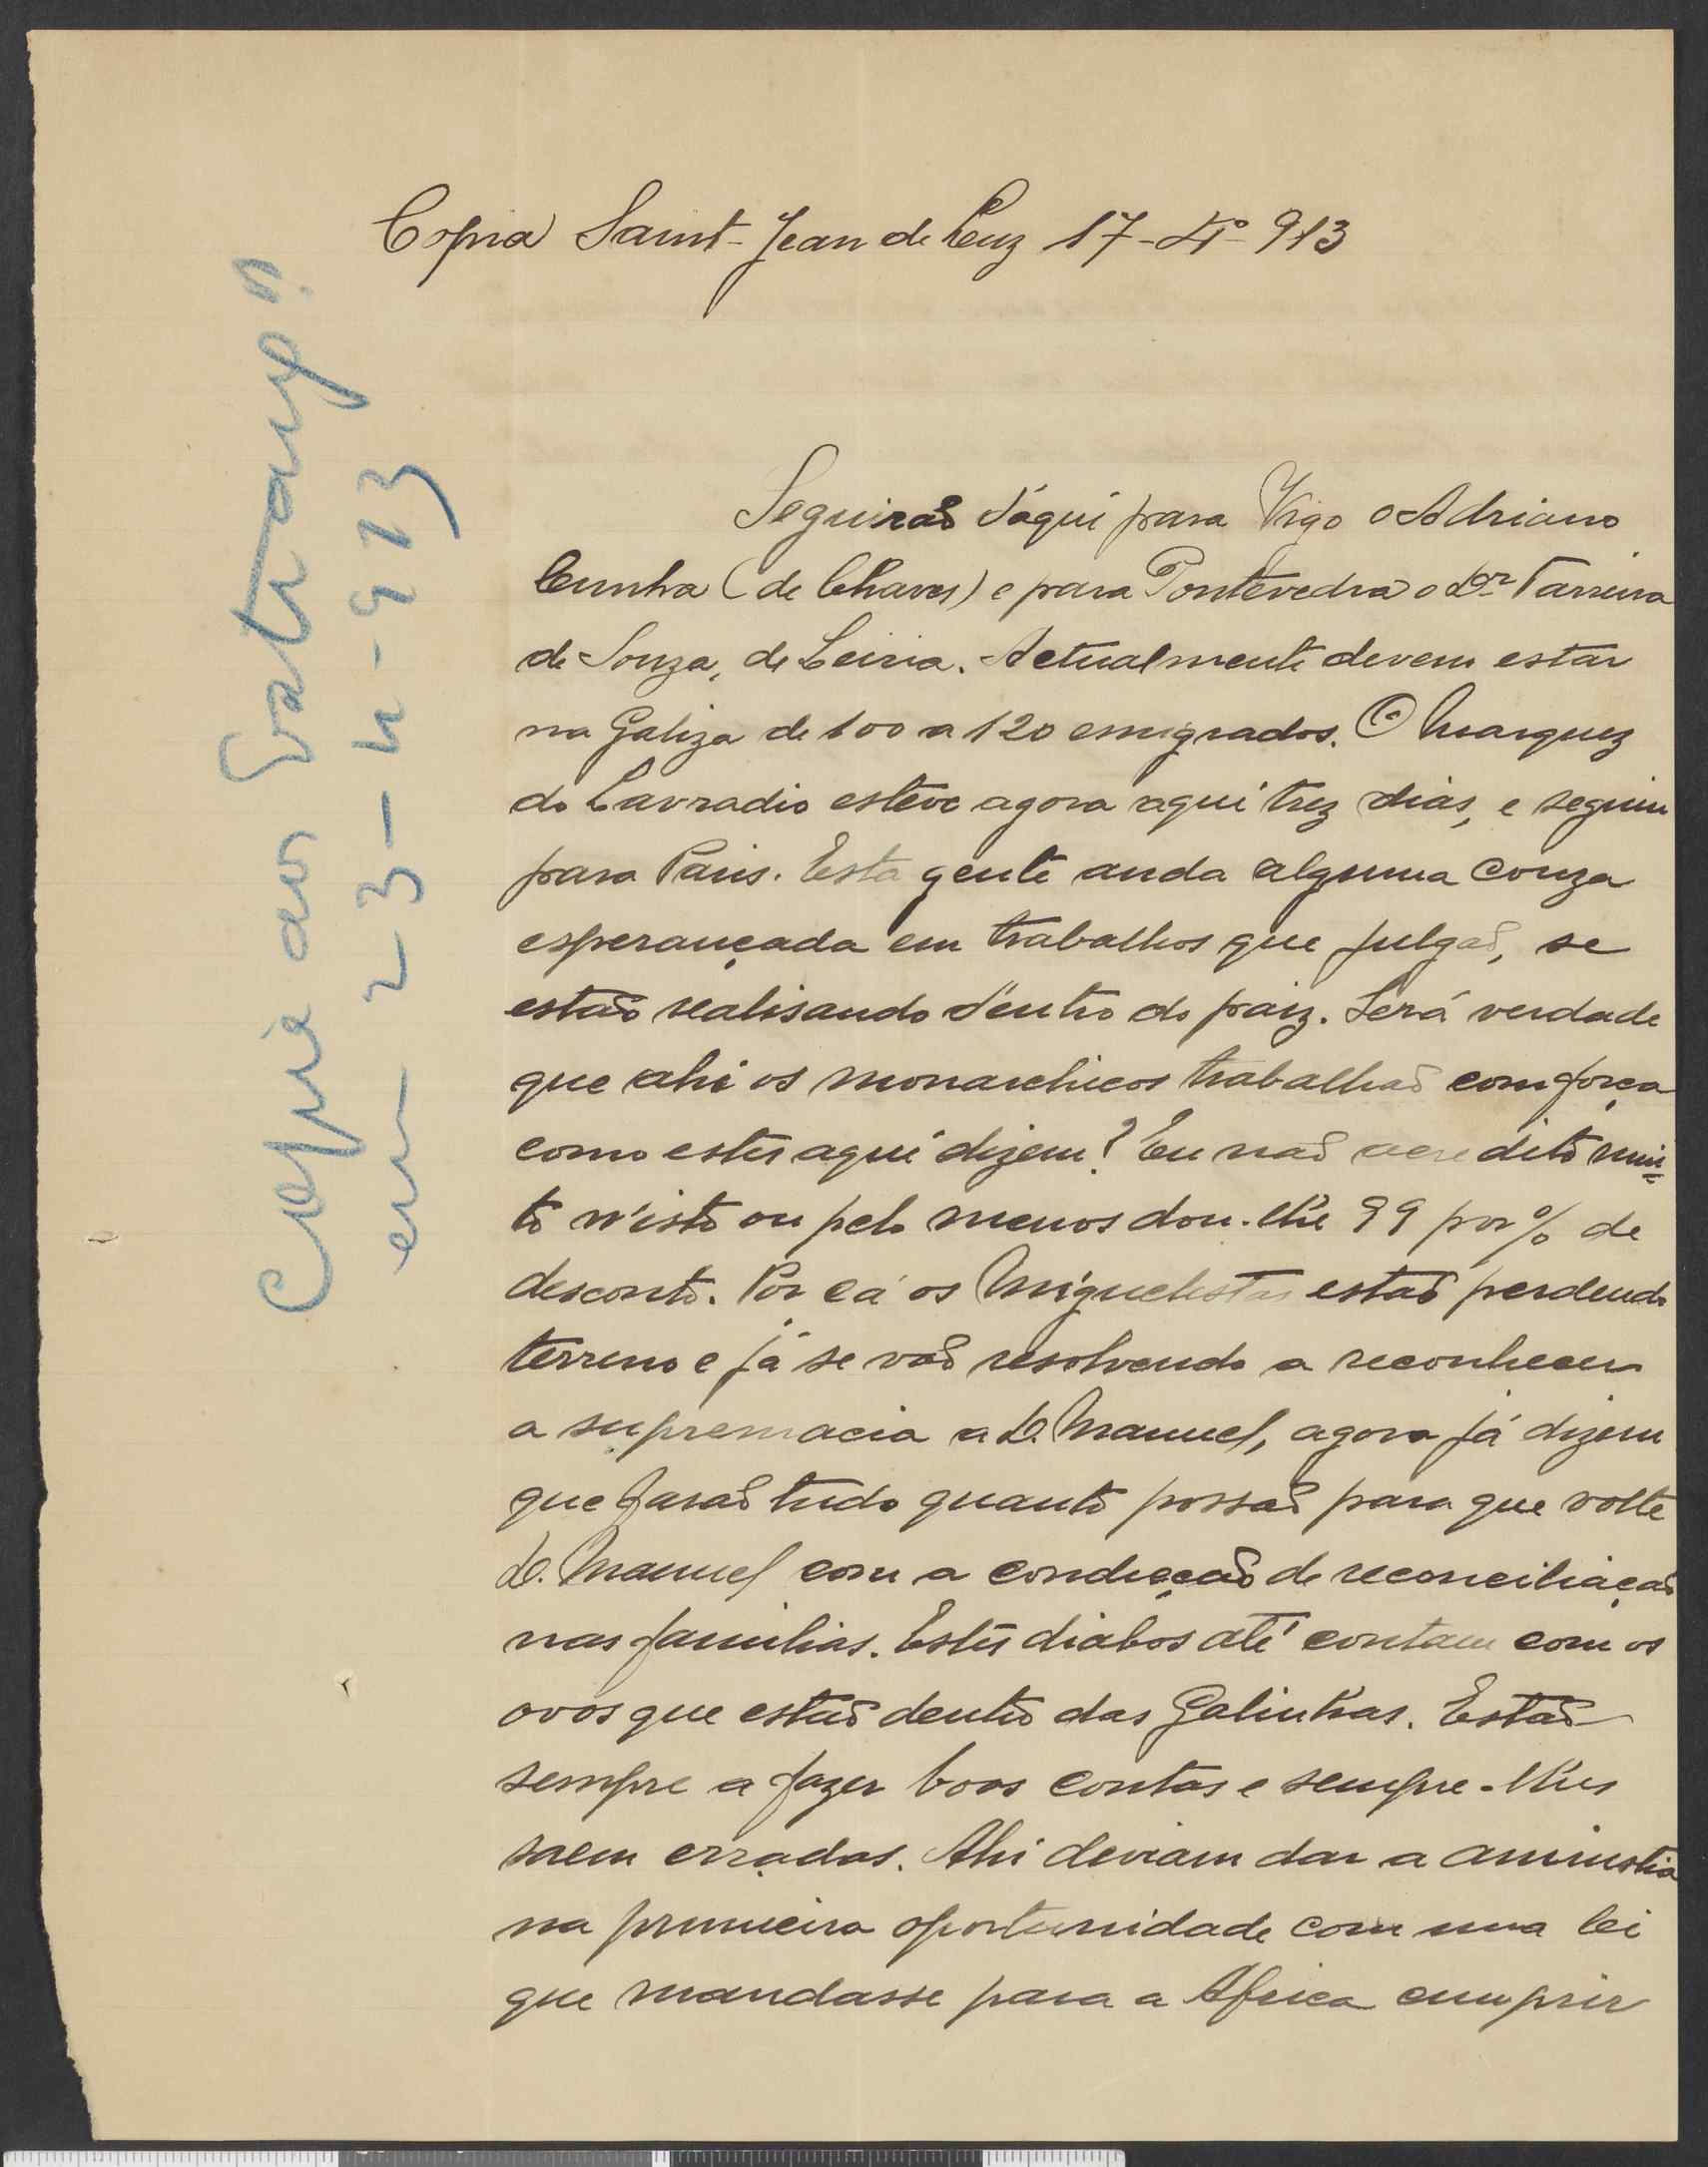 Copia Saint-Jean de Luz 17-4º-913
Copia aos Estrangos
em 23-4-913
Seguirão d'aqui para Vigo o Adriano
Cunha (de Chaves) e para Pontevedra o Dor Tarreira
de Souza, de Leiria. Actualmente devem estar
na Galiza de 100 a 120 emigrados. O Marquez
do Lavradio esteve agora aqui trez dias, e seguiu
para Paris. Esta gente anda alguma couza
esperançada em trabalhos que julgão, se
estão realisando d'entro do paiz. Será verdade
que ahi os monarchicos trabalhão com força
como estes aqui dizem? Eu não acredito mui=
to n'isto ou pelo menos dou-lhe 99 por % de
desconto. Por cá os Miguelistas estão perdendo
terreno e já se vão resolvendo a reconhecer
a supremacia a D. Manuel, agora já dizem
que farão tudo quanto possão para que volte
D. Manuel com a condicção de reconciliação
nas familias. Estes diabos até contam com os
ovos que estão dentro das Galinhas. Estão
sempre a fazer boas contas e sempre-lhes
saem erradas. Ahi deviam dar a aminstia
na primeira oportunidade com uma lei
que mandasse para a Africa cumprir